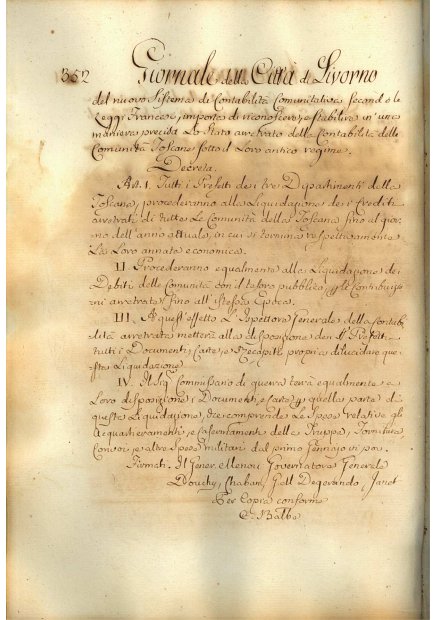 352 Giornale della Città di Livorno
del nuovo Sistema di Contabilità Comunitativa secondo le
Leggi Francesi, importa di riconoscere, e stabilire in una
maniera precisa Lo Stato arretrato della Contabilità delle
Comunità Toscane sotto il Loro antico regime.
Decreta.
Art. I. Tutti i Prefetti dei tre Dipartimenti della
Toscana, procederanno alla Liquidazione dei Crediti
arretrati di tutte Le Comunità della Toscana fino al gior-
no dell'anno attuale, in cui si termina respettivamente
La Loro annata economica.
II. Procederanno egualmente alla Liquidazione dei
Debiti delle Comunità con il tesoro pubblico, le Contribuzio-
ni arretrate fino all'istessa Epoca.
III. A quest'effetto L'Ispettore Generale della Contabi-
lità arretrata metterà alla disposizione dei Prefetti
tutti i Documenti, Carte, e Recapiti, proprii a dilucidare que-
sta Liquidazione.
IV. Il Sig. Commissario di guerra terrà egualmente a
Loro disposizione i Documenti, e Carte quella parte di
questa Liquidazione, che comprende Le Spese relative gli
Acquartieramenti, e Casermamenti della Truppa, Forniture,
Convoi, e altre Spese militari dal primo Gennajo in poi.
Firmati. Il Gener. Menou Governatore Generale
Douchy, Chaban, Degerando, Janet
Per Copia conforme
C. Balbo